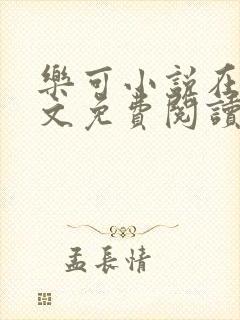 樂可小說在
文免費閱讀
孟長情